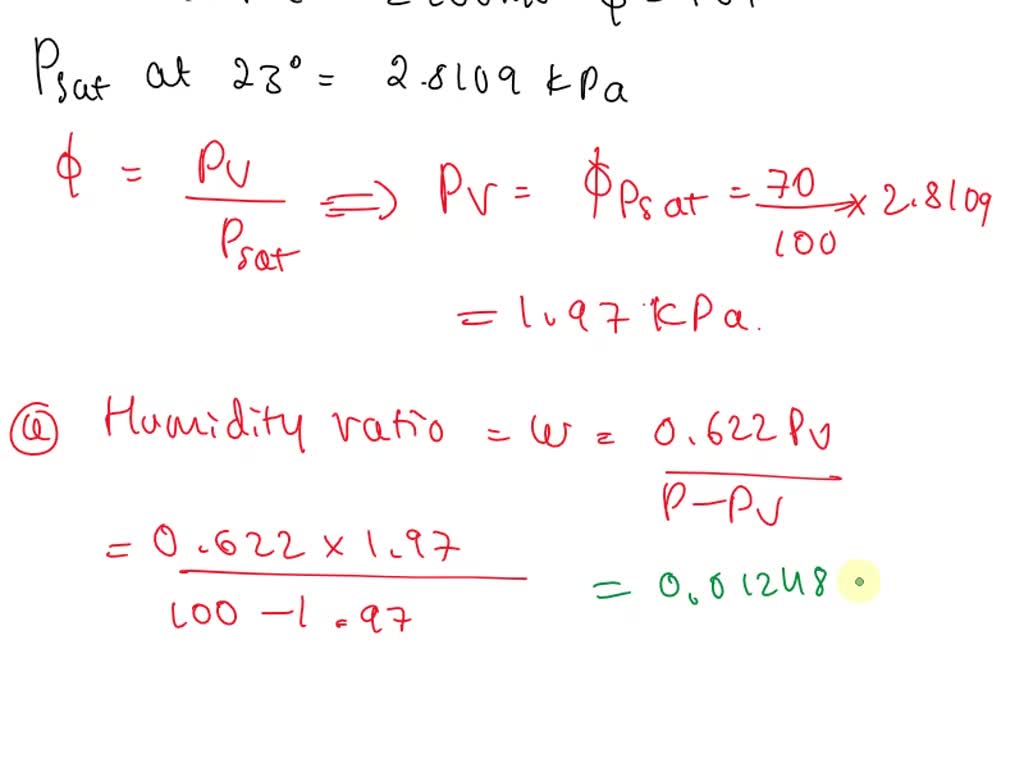 P_sat at 23° = 2.8109 kPa
ϕ = Pv / Psat ⟹ Pv = ϕ Psat = 70/100 × 2.8109
= 1.97 kPa.
ⓐ Humidity ratio = w = 0.622 Pv / P − Pv
= 0.622 × 1.97 / 100 − 1.97 = 0.01248